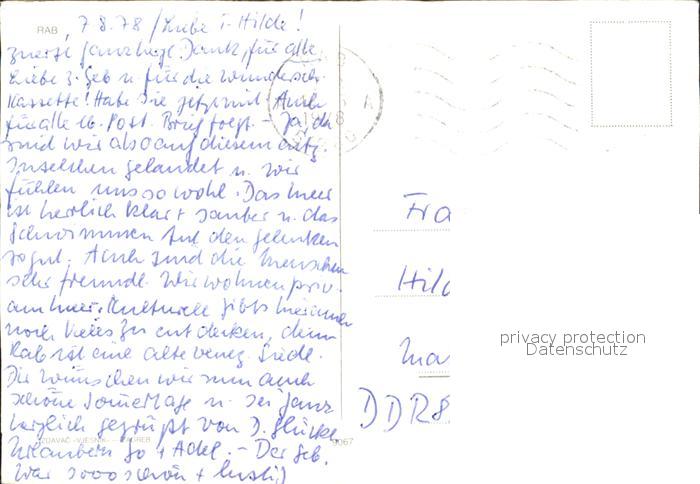 RAB, 7.8.78 / Liebe T. Hilde!
Zuerst ganz herzl. Dank für alle
Liebe z. Geb u. für die wundersch.
Kassette! Habe sie jetzt mit. Auch
für alle lb. Post. Brief folgt. - Ja, da
sind wir also auf diesem entz.
Inselchen gelandet u. wir
fühlen uns so wohl. Das Meer
ist herrlich klar + sauber u. das
Schwimmen tut den Gelenken
so gut. Auch sind die Menschen
sehr freundl. Wir wohnen priv.
am Meer. Kulturell gibts hier immer
noch vieles zu entdecken, denn
Rab ist eine alte venez. Siedl.
Dir wünschen wir nun auch
schöne Sommertage u. sei ganz
herzlich gegrüßt von D. glückl.
Urlaubern Jo + Adel. - Der Geb.
war sooo schön + lustig
IZDAVAČ »VJESNIK« - ZAGREB
9067
Fra
Hild
Ma
DDR 8
privacy protection
Datenschutz